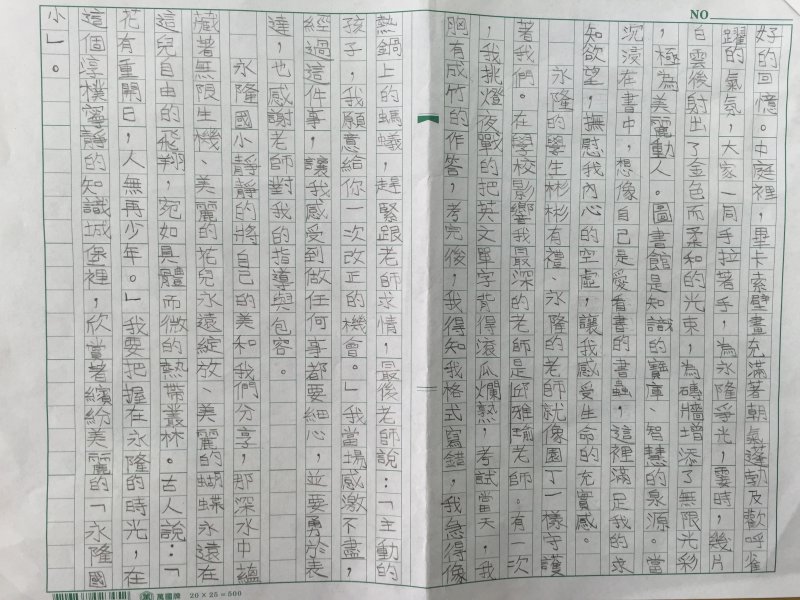 NO
好的回憶。中庭裡，畢卡索壁畫充滿著朝氣蓬勃及歡呼雀
躍的氣氛，大家一同手拉著手，為永隆爭光，霎時，幾片
白雲後射出了金色而柔和的光束，為磚牆增添了無限光彩
，極為美麗動人。圖書館是知識的寶庫、智慧的泉源。當
沉浸在書中，想像自己是愛看書的書蟲，這裡滿足我的求
知欲望，撫慰我內心的空虛，讓我感受生命的充實感。
永隆的學生彬彬有禮、永隆的老師就像園丁一樣守護
著我們。在學校影響我最深的老師是邱雅瑜老師。有一次
，我挑燈夜戰的把英文單字背得滾瓜爛熟，考試當天，我
胸有成竹的作答，考完後，我得知我格式寫錯，我急得像
熱鍋上的螞蟻，趕緊跟老師求情，最後老師說：「主動的
孩子，我願意給你一次改正的機會。」我當場感激不盡，
經過這件事，讓我感受到做任何事都要細心，並要勇於表
達，也感謝老師對我的指導與包容。
永隆國小靜靜的將自己的美和我們分享，那深水中蘊
藏著無限生機、美麗的花兒永遠綻放、美麗的蝴蝶永遠在
這兒自由的飛翔，宛如具體而微的熱帶叢林。古人說：「
花有重開日，人無再少年。」我要把握在永隆的時光，在
這個淳樸寧靜的知識城堡裡，欣賞著繽紛美麗的「永隆國
小」。
萬國牌 20×25=500